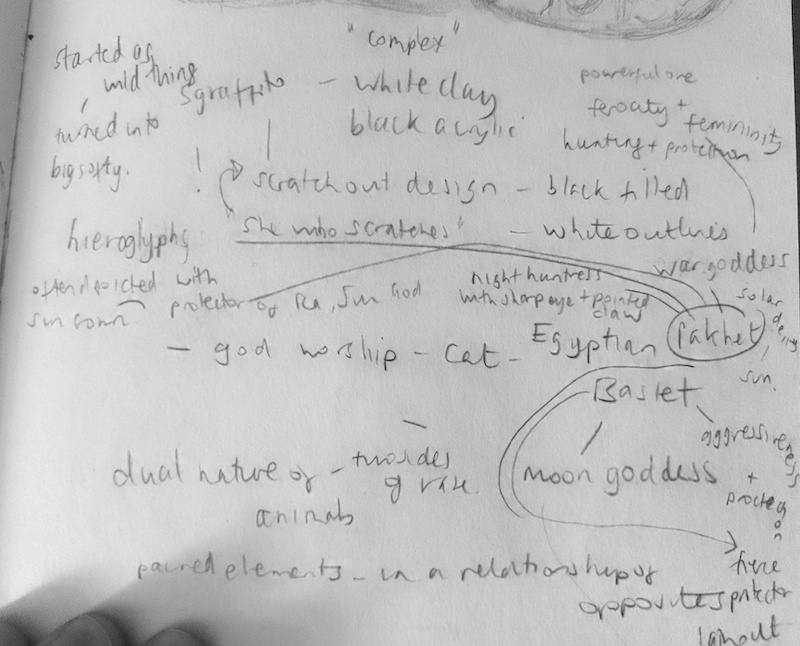 "complex"
started as
mild thing
turned into
big softy.
sgraffito - white clay
black acrylic
powerful one
ferocity +
femininity
hunting + protection
! scratch out design - black filled
"she who scratches" - white outlines
hieroglyphs
often depicted with
sun crown
protector of Ra, Sun God
night huntress
with sharp eye + pointed
claw
war goddess
solar
deity
sun.
- god worship - cat - Egyptian Pakhet
Bastet
aggressiveness
+
protection
moon goddess
dual nature of - two sides
of
animals
paired elements - in a relationship of
opposites
protector